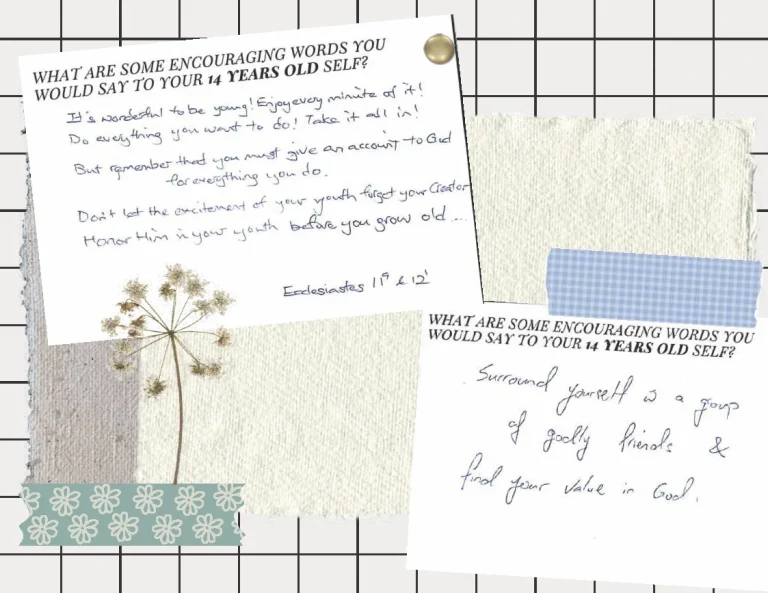 WHAT ARE SOME ENCOURAGING WORDS YOU
WOULD SAY TO YOUR 14 YEARS OLD SELF?
It's wonderful to be young! Enjoy every minute of it!
Do everything you want to do! Take it all in!
But remember that you must give an account to God
for everything you do.
Don't let the excitement of your youth forget your Creator
Honor Him in your youth before you grow old ...
Ecclesiastes 11⁹ & 12¹
WHAT ARE SOME ENCOURAGING WORDS YOU
WOULD SAY TO YOUR 14 YEARS OLD SELF?
Surround yourself w a group
of godly friends &
find your value in God.